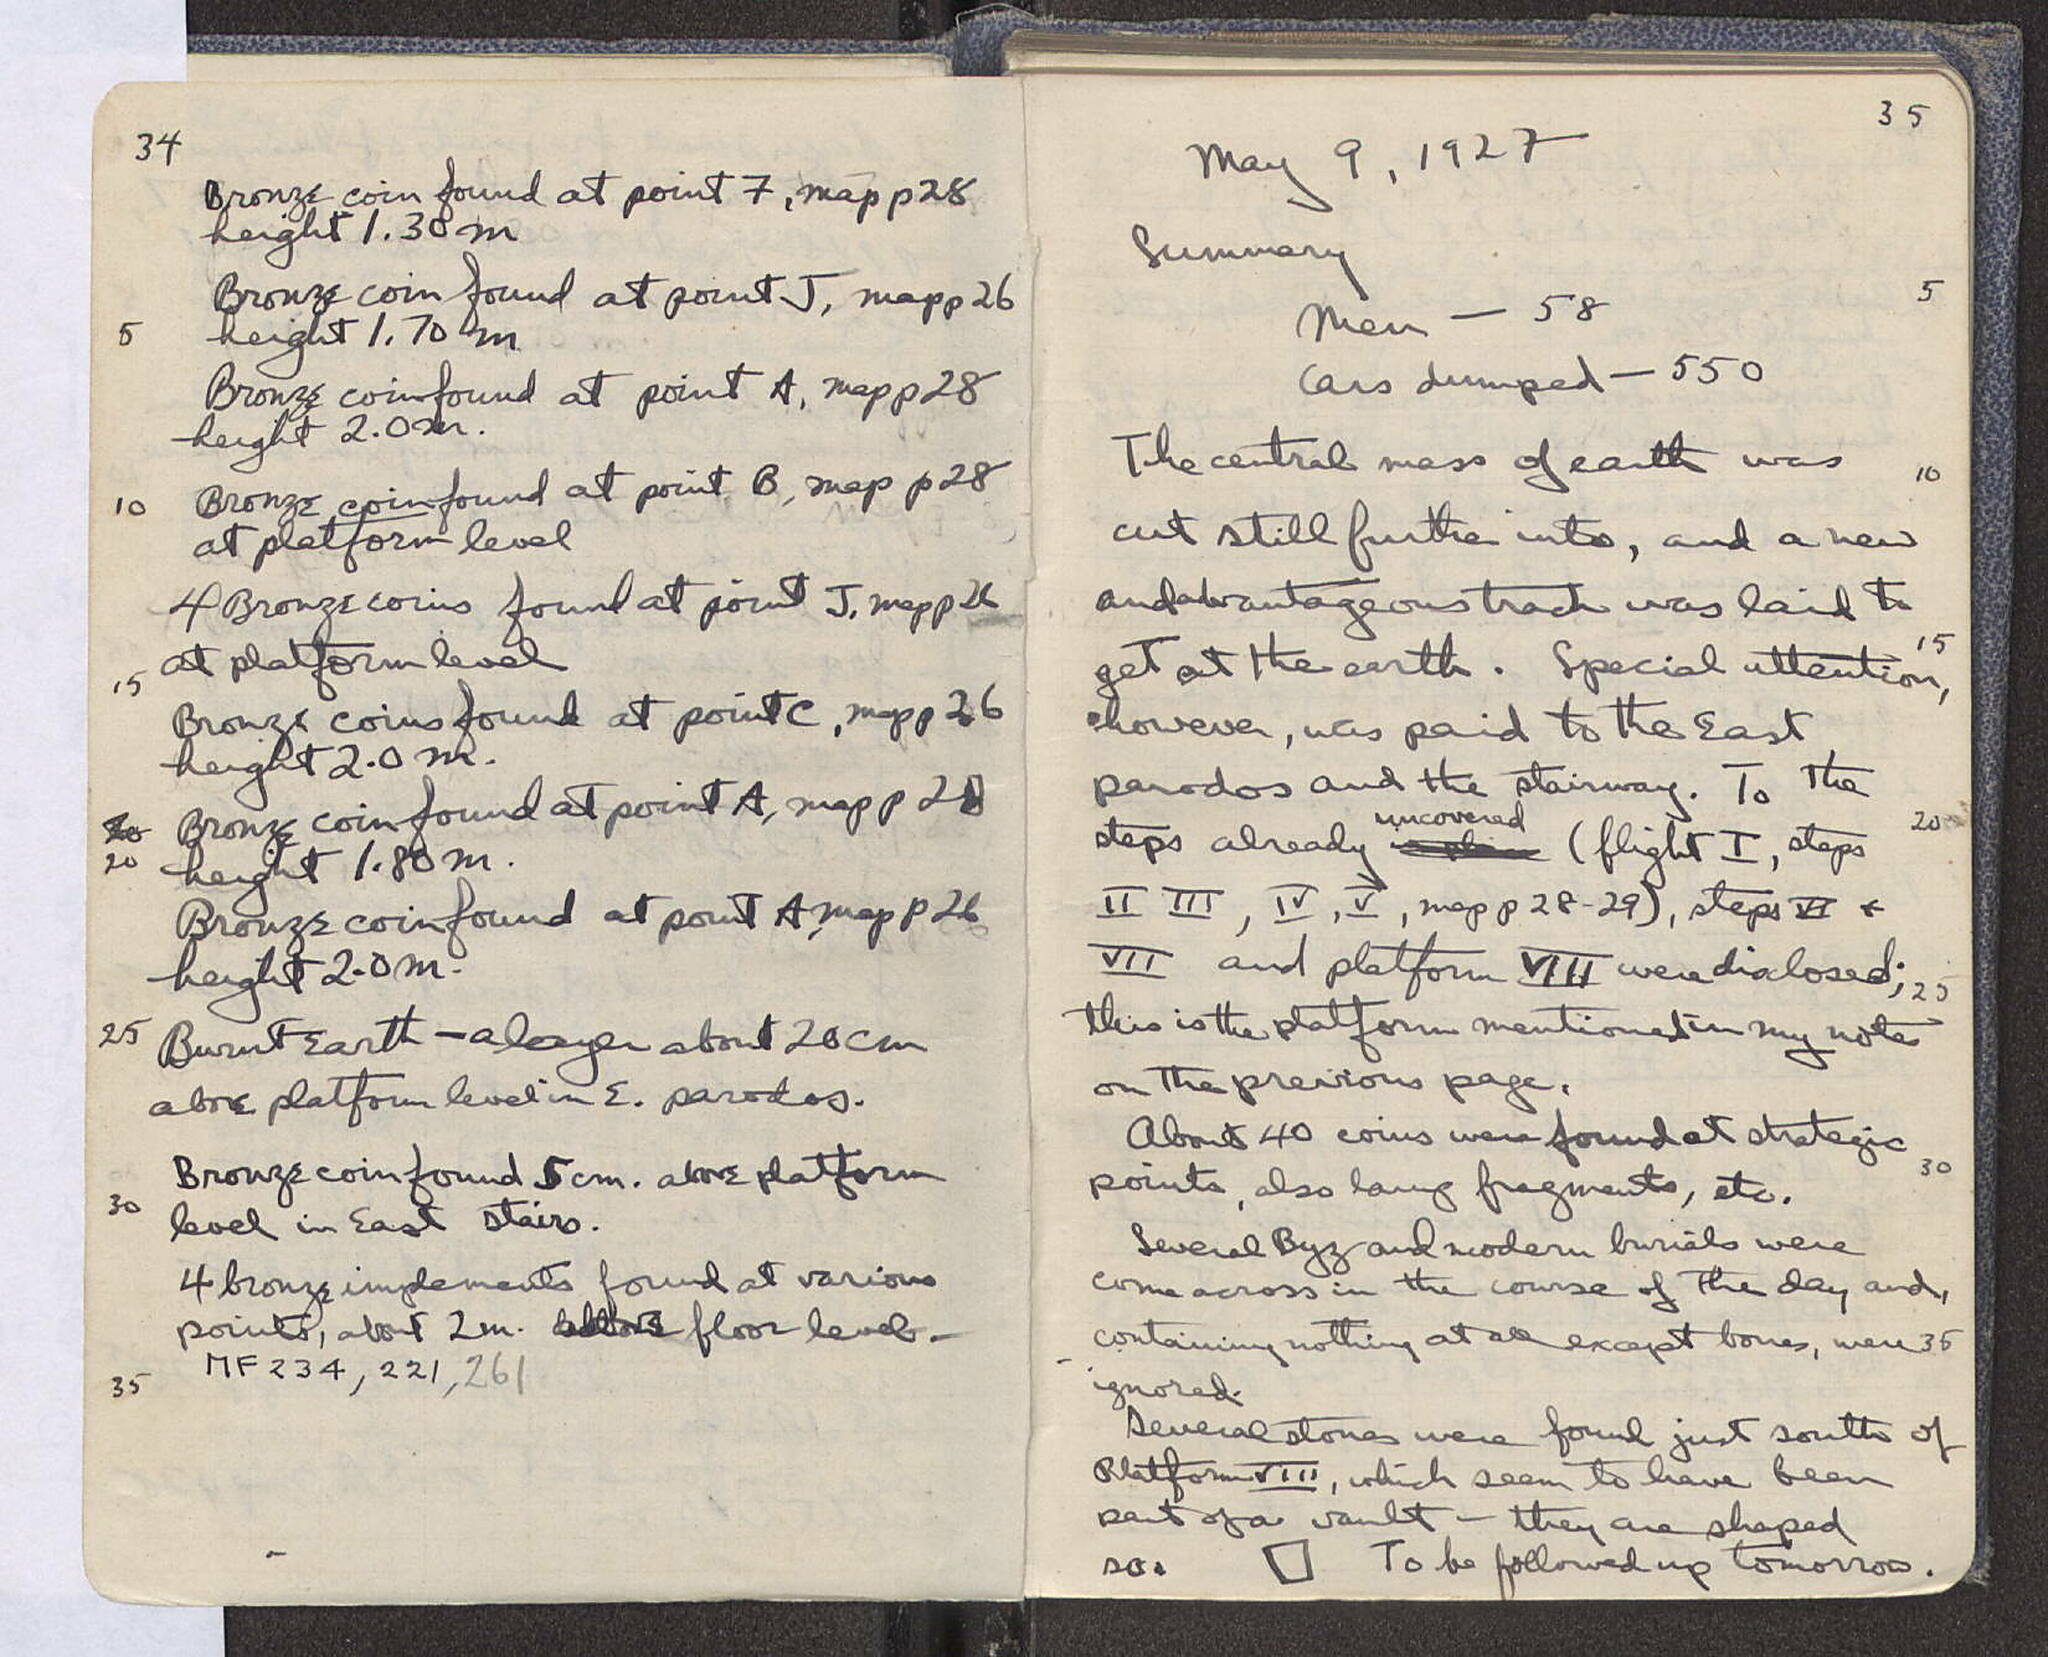 34
Bronze coin found at point 7, map p 28
height 1.30 m
Bronze coin found at point J, map p 26
5 height 1.70 m
Bronze coin found at point A, map p 28
height 2.0 m.
10 Bronze coin found at point B, map p 28
at platform level
4 Bronze coins found at point J, map p 26
at platform level
15
Bronze coins found at point C, map p 26
height 2.0 m.
20 Bronze coin found at point A, map p 28
20 height 1.80 m.
Bronze coin found at point A, map p 26
height 2.0 m.
25 Burnt Earth – a layer about 20 cm
above platform level in E. parodos.
Bronze coin found 5 cm. above platform
30 level in East stairs.
4 bronze implements found at various
points, about 2 m. above floor level. –
MF 234, 221, 261
35
35
May 9, 1927
Summary
5
Men – 58
Cars dumped – 550
The central mass of earth was 10
cut still further into, and a new
and advantageous track was laid to
get at the earth. Special attention, 15
however, was paid to the East
parodos and the stairway. To the
uncovered
steps already (flight I, steps 20
II III, IV, V, map p 28-29), steps VI &
VII and platform VIII were disclosed; 25
this is the platform mentioned in my notes
on the previous page.
About 40 coins were found at strategic
points, also lamp fragments, etc. 30
Several Byz and modern burials were
come across in the course of the day and,
containing nothing at all except bones, were 35
ignored.
Several stones were found just south of
Platform VIII, which seem to have been
part of a vault – they are shaped
so. To be followed up tomorrow.